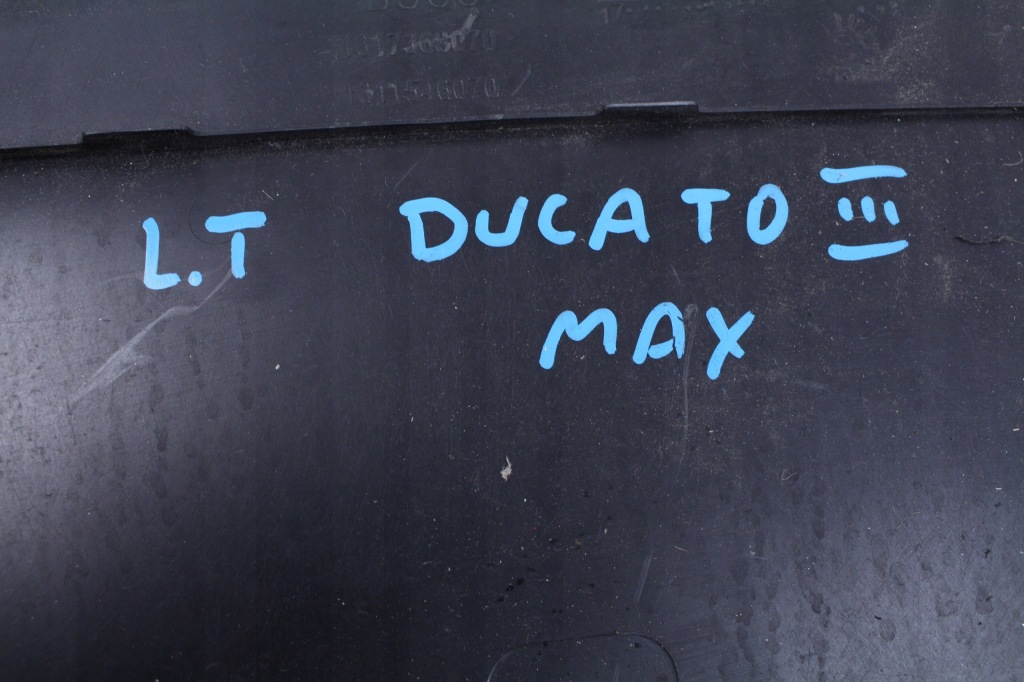 1317368070
1311546070
L.T DUCATO III
MAX